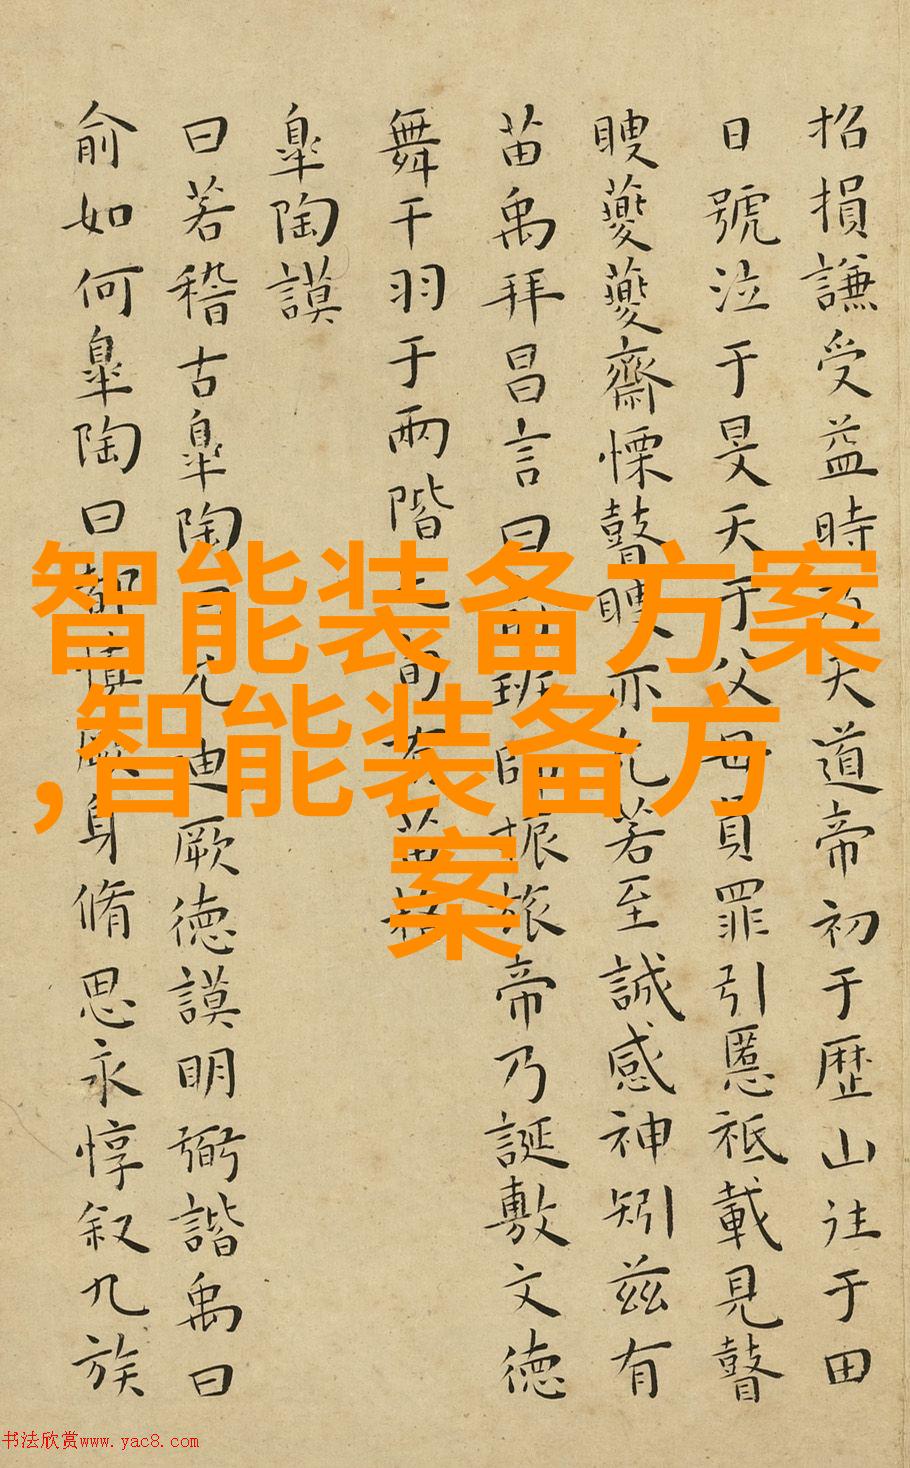 招損謙受益時乃天道帝初于歴山往于田
日號泣于旻天于父母負罪引慝祗載見瞽
瞍夔夔齋慄瞽瞍亦允若至諴感神矧兹有
苗禹拜昌言曰俞班師振旅帝乃誕敷文德
舞干羽于兩階七旬有苗格
皐陶謨
曰若稽古皐陶曰允迪厥德謨明弼諧禹曰
俞如何皐陶曰都慎厥身脩思永惇叙九族
智能装备方案
,智能装备方
案
书法欣赏www.yac8.com